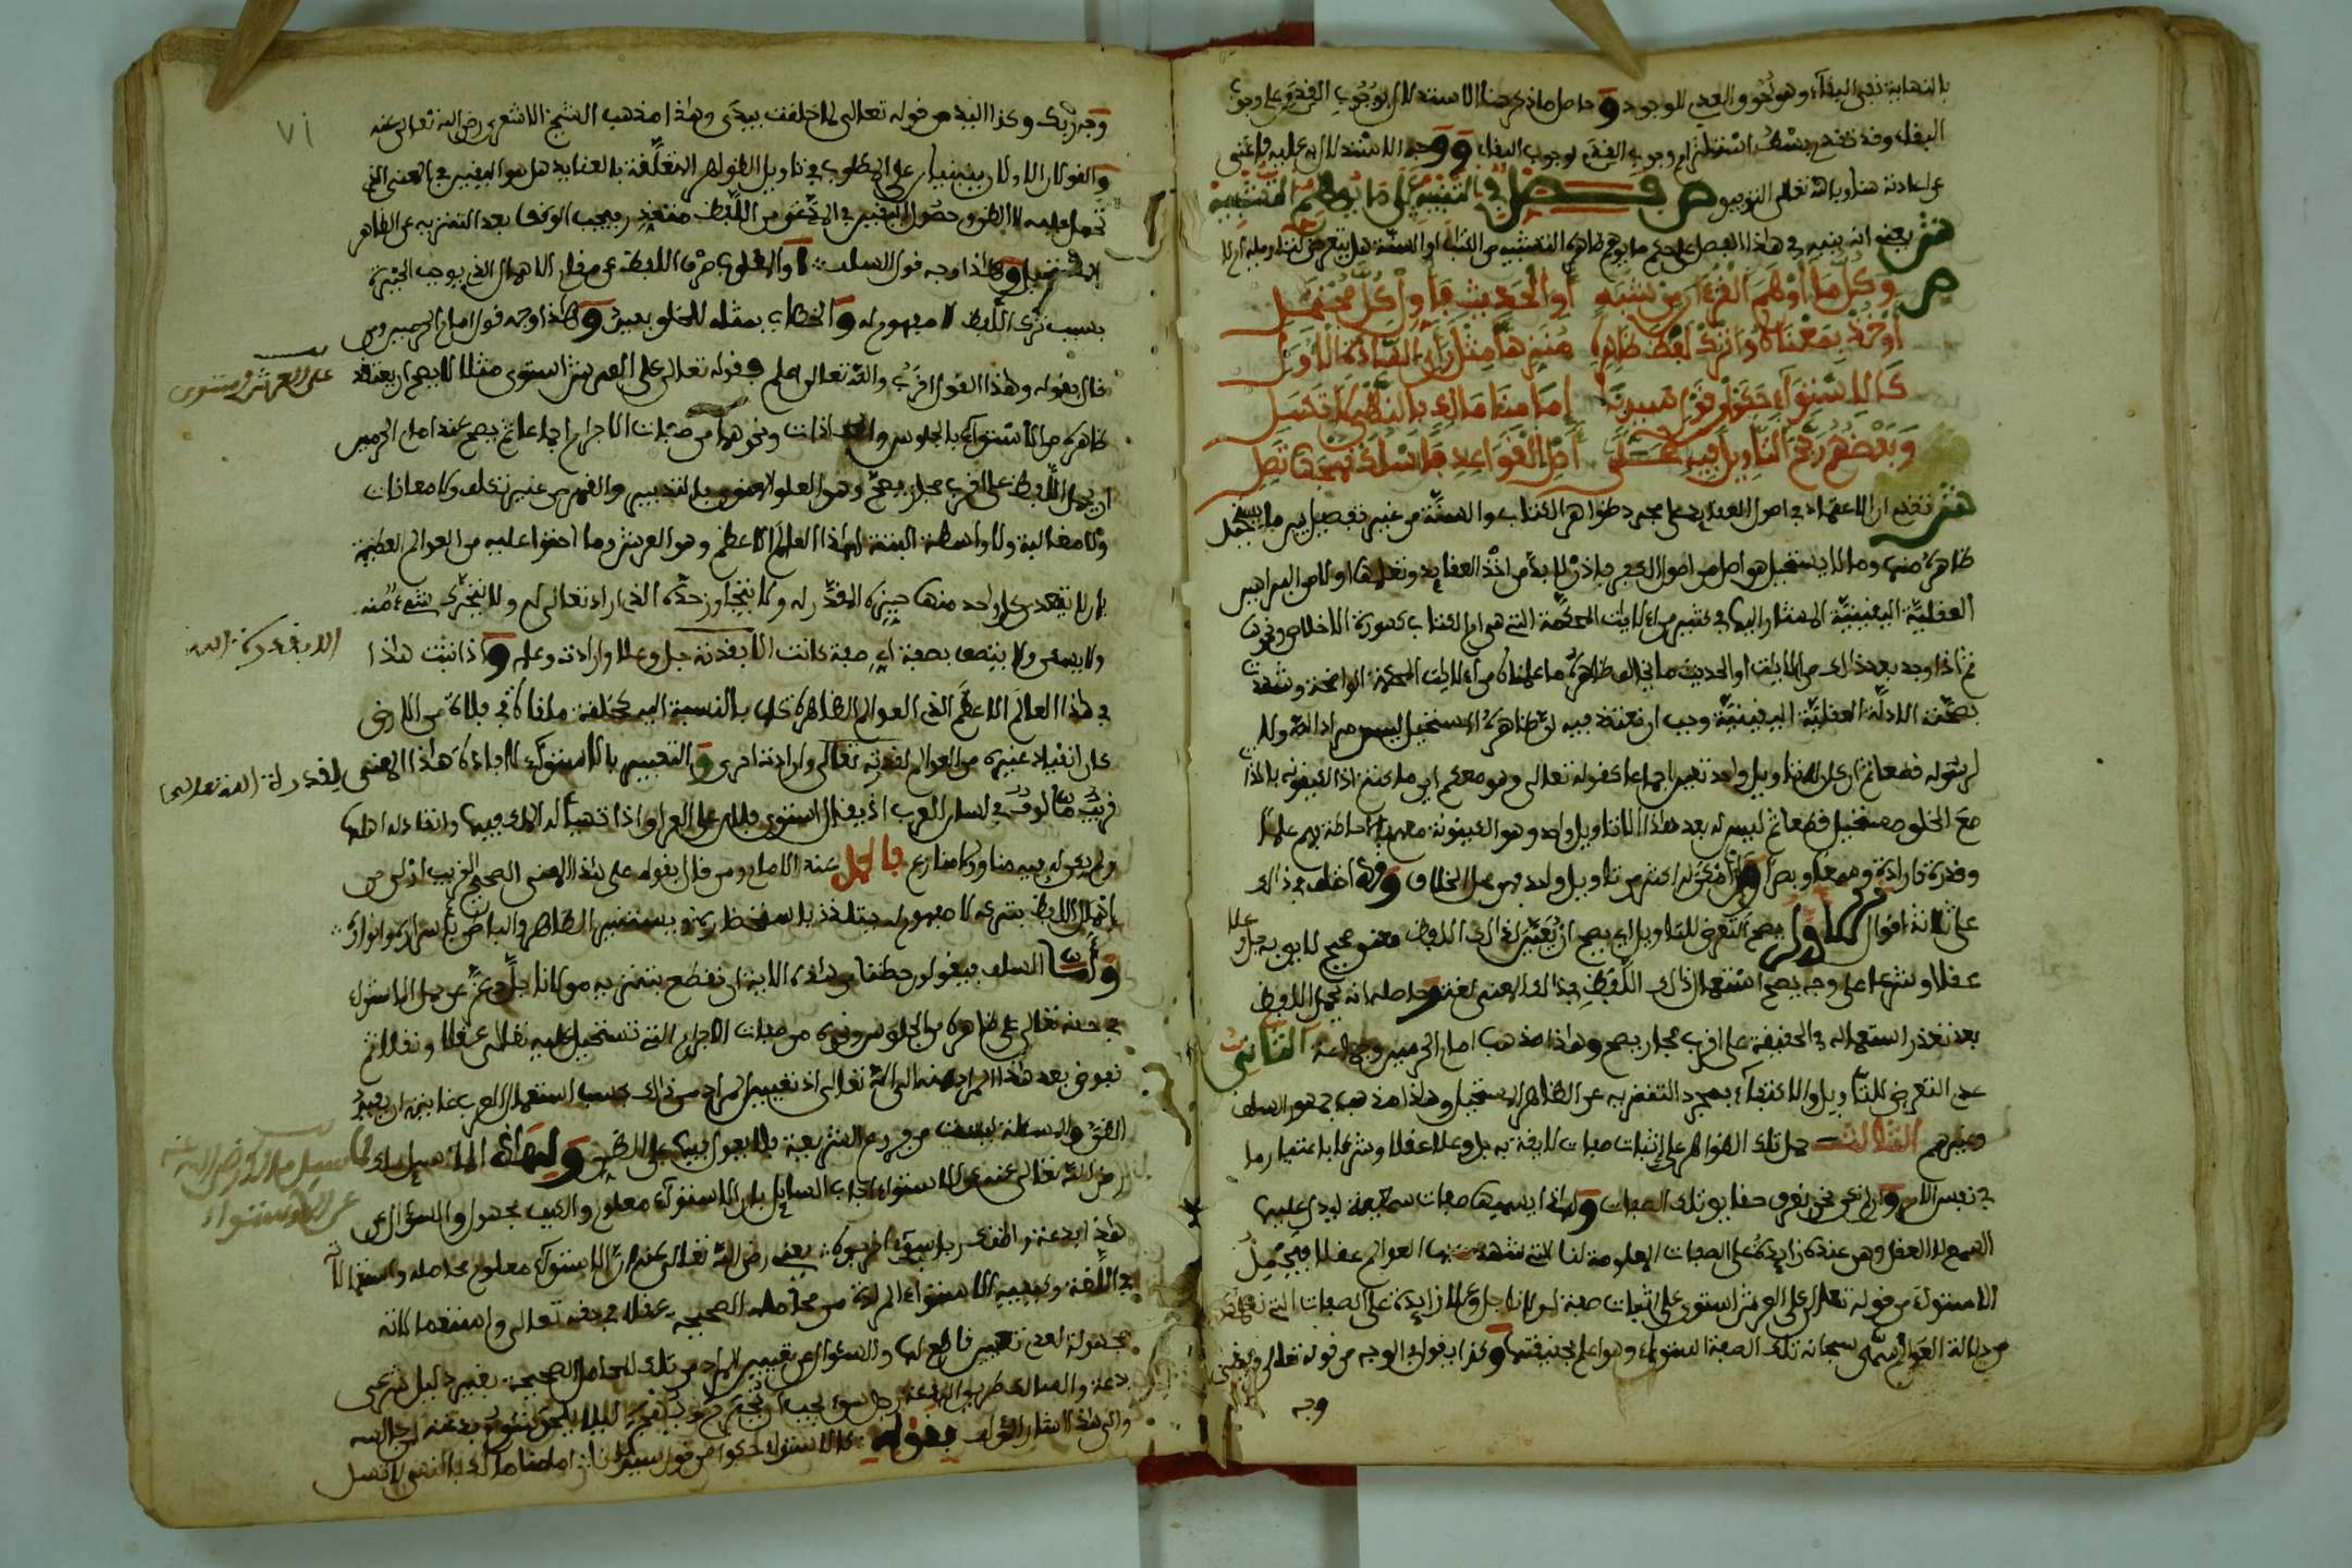 بالنهاية نفي البقاء وهو لحوق العدم للوجود وحاصل ما ذكر هنا الاستدلال بوجوب القدم على وجوب
البقاء وقد تقدم استلزام وجوب القدم لوجوب البقاء ووجه الاستدلال به عليه فأغنى
عن اعادته هنا وبالله تعالى التوفيق ص فصل في التنبيه على ما يوهم التشبيه
ش يعني انه ينبه في هذا الفصل على حكم ما يوهم ظاهره التشبيه من الكتاب او السنة هل يتعرض لتاويله ام لا
ص وكل ما أوهم القرءان من شبه أو الحديث فأول كل محتمل
أو خذ بمعناه واترك لفظ ظاهره منزها مثل رأي السادة الأول
كالاستواء حكوا من قول سيدنا إمامنا مالك بالنهي لا تسل
وبعضهم رجح التأويل فيه على أصل القواعد فاسلك نهجها تصل
ش تقدم ان الاعتماد في اصول العقايد على مجرد ظواهر الكتاب والسنة من غير تفصيل بين ما يستحيل
ظاهره منها وما لا يستحيل هو اصل من اصول الكفر فاذن لا بد من اخذ العقايد وتعليمها اولا من البراهين
العقلية اليقينية المشار اليها في كثير من الايات المحكمة التي هي ام الكتاب كسورة الاخلاص ونحوها
ثم اذا وجد بعد ذلك من الايات او الحديث ما يخالف ظاهره ما علمناه من الايات المحكمة الواضحة وشهدت
بصحته الادلة العقلية اليقينية وجب ان نعتقد فيه ان ظاهره المستحيل ليس مراد الله ولا
لرسوله قطعا ثم ان كان له تاويل واحد تعين اجماعا كقوله تعالى وهو معكم اين ما كنتم اذ الكينونة بالذات
مع الخلق مستحيل قطعا ثم ليس له بعد هذا الا تاويل واحد وهو الكينونة معهم احاطة بهم علما
وقدرة وارادة وسمعا وبصرا وان امكن له اكثر من تاويل واحد فهو محل الخلاف وقد اختلف في ذلك
على ثلاثة اقوال الاول يصح التعرض للتاويل اي يصح ان يعين لذلك اللفظ معنى صحيح لايق به جل وعلا
عقلا وشرعا على وجه يصح استعمال ذلك اللفظ في ذلك المعنى لغة وحاصله انه يحمل اللفظ
بعد تعذر استعماله في الحقيقة على اقرب مجاز يصح وهذا مذهب امام الحرمين وجماعة الثاني
عدم التعرض للتاويل والاكتفاء بمجرد التنزيه عن الظاهر المستحيل وهذا مذهب جمهور السلف
وغيرهم الثالث حمل تلك الظواهر على إثبات صفات لايقة به جل وعلا عقلا وشرعا باعتبار ما
في نفس الامر وان لم نكن نحن نعرف حقايق تلك الصفات ولهذا يسميها صفات سمعية لدى عليها
السمع لا العقل وهي عنده زايدة على الصفات المعلومة لنا التي شهدت بها العوالم عقلا فيحمل
الاستواء من قوله تعالى على العرش استوى على اثبات صفة لمولانا جل وعلا زايدة على الصفات التي
من دلالة العوالم سمى سبحانه تلك الصفة استواء وهو اعلم بحقيقتها وكذا يقول في الوجه من قوله تعالى ويبقى
وجه
وجه ربك وكذا اليد من قوله تعالى لما خلقت بيدي وهذا مذهب الشيخ الاشعري رضي الله تعالى عنه
والقولان الاولان مبنيان على المطلوب في تاويل الظواهر المتعلقة بالعقايد هل هو اليقين في المعنى الذي
تحمل عليه او الظن وحصول اليقين في المدعى من اللفظ متعذر فيجب الوقف بعد التنزيه عن الظاهر
المستحيل وهذا وجه قول السلف او المطلوب صرف اللفظ عن مقام الاهمال الذي يوجب الحيرة
بسبب ترك اللفظ لا مفهوم له والخطاب بمثله للخلق بعيد وهذا وجه قول امام الحرمين ومن
قال بقوله وهذا القول اقرب والله تعالى اعلم وقوله تعالى على العرش استوى مثلا لا يصح ان يعتقد
على العرش استوى
ظاهره من الاستواء بالجلوس والمحاذات ونحوهما من صفات الاجرام اجماعا ثم يصح عند امام الحرمين
ان يحمل اللفظ على اقرب مجاز يصح وهو العلو المعنوي بالتدبير والقهر من غير تكلف ولا معانات
ولا مغالبة ولا واسطة البتة لهذا العالم الاعظم وهو العرش وما احتوا عليه من العوالم العظيمة
بان لا يتعدى كل واحد منها حيزه المقدر له ولا يتجاوز حده الذي اراد تعالى له ولا يتحرك شيء منه
ولا يسكن ولا يتصف بصفة اي صفة كانت الا بقدرته جل وعلا وارادته وعلمه واذا ثبت هذا
الا بقدرة الله
في هذا العالم الاعظم الذي العوالم الظاهرة كلها بالنسبة اليه كحلقة ملقاة في فلاة من الارض
كان انقياد غيره من العوالم لقدرته تعالى وارادته احرى والتعبير بالاستواء لافادة هذا المعنى
لقدرة الله تعالى
قريب مالوف في لسان العرب اذ يقال استوى فلان على العراق اذا تهيأ له الملك فيها وانقاد له اهلها
ولم يكن له فيه مناو ولا منازع فالحمل عند الامام ومن قال بقوله على هذا المعنى الصحيح القريب اولى من
إهمال اللفظ بتركه لا مفهوم له
وأما السلف فيقولون حظنا من هذه الاية ان نقطع بتنزيه مولانا جل وعز عن حمل الاستواء
في حقه تعالى على ظاهره من الجلوس ونحوه من صفات الاجرام التي تستحيل عليه تعالى عقلا ونقلا ثم
نفوض بعد هذا المراد منه الى الله تعالى اذ تعيين المراد من ذلك بحسب استعمال العرب غايته ان يفيد
الظن والمسئلة ليست من فروع الشريعة فلا يعول فيها على الظن ولهذا لما سئل مالك
لما سيل مالك رضي الله عنه
عن الاستواء
رضي الله تعالى عنه عن الاستواء اجاب السايل بان الاستواء معلوم والكيف مجهول والسؤال عن
هذا بدعة واظنك رجل سوء اخرجوه عني يعني رضي الله تعالى عنه ان الاستواء معلوم محامله واستعمالاته
في اللغة وكيفية الاستواء المراد من محامله الصحيحة عقلا في حقه تعالى واستعمالاته
مجهولة لعدم تعيين قاطع لها والسؤال عن تعيين المراد من تلك المحامل الصحيحة بغير دليل شرعي
بدعة والسالك طريق البدعة رجل سوء يجب
والى هذا اشار المؤلف بقوله كالاستواء حكوا من قول سيدنا امامنا مالك بالنهي لا تسل